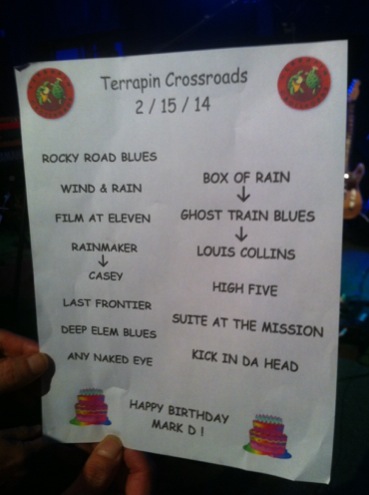 Terrapin Crossroads
2 / 15 / 14
ROCKY ROAD BLUES
WIND & RAIN
FILM AT ELEVEN
RAINMAKER
↓
CASEY
LAST FRONTIER
DEEP ELEM BLUES
ANY NAKED EYE
BOX OF RAIN
↓
GHOST TRAIN BLUES
↓
LOUIS COLLINS
HIGH FIVE
SUITE AT THE MISSION
KICK IN DA HEAD
HAPPY BIRTHDAY
MARK D !